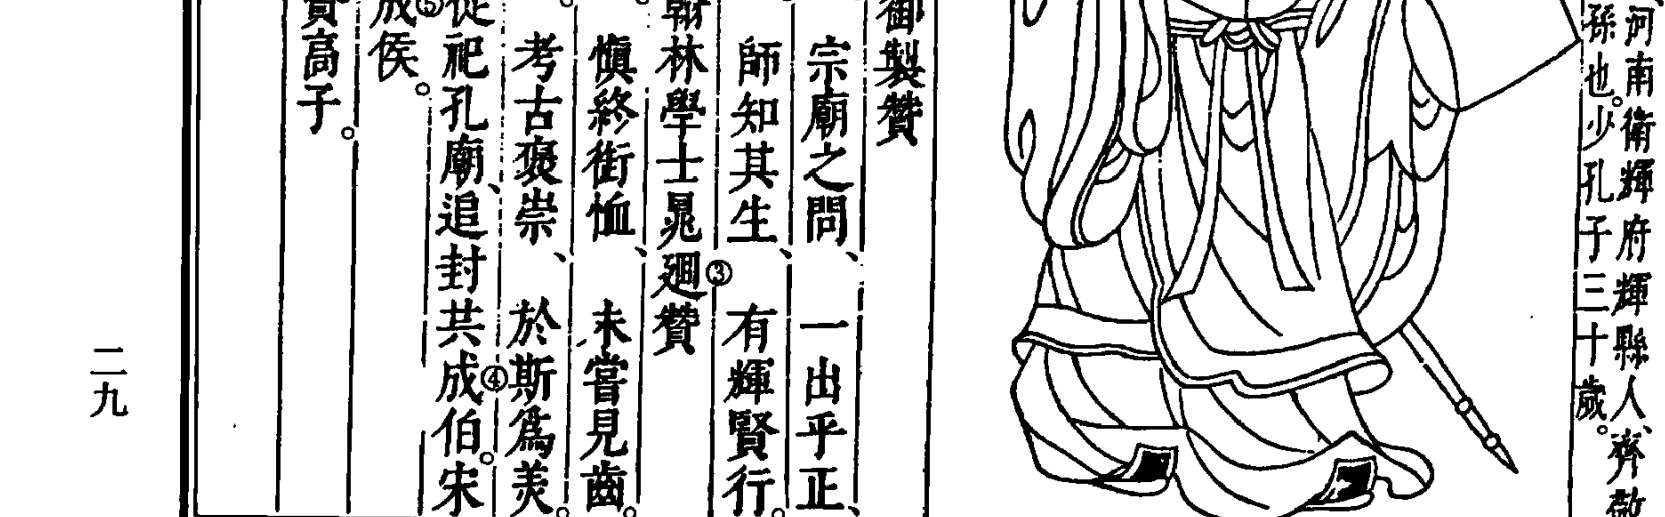 河南衛輝府輝縣人、齊敬
孫也。少孔子三十歲。
御製贊
宗廟之問、一出乎正、
師知其生、有輝賢行。
翰林學士晁③迥贊
慎終銜恤、未嘗見齒。
考古褒崇、於斯為美。
從祀孔廟、追封共④成伯。宋
成⑤侯。
貢高子。
二九